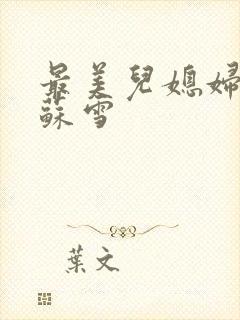 最美兒媳婦
蘇雪
葉文